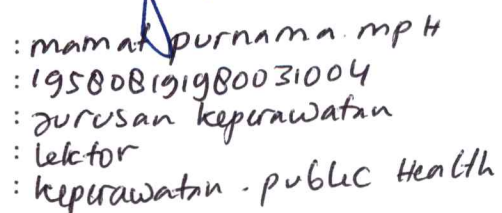 : mamat purnama. mpH
: 195808191980031004
: Jurusan keperawatan
: lektor
: keperawatan . public Health